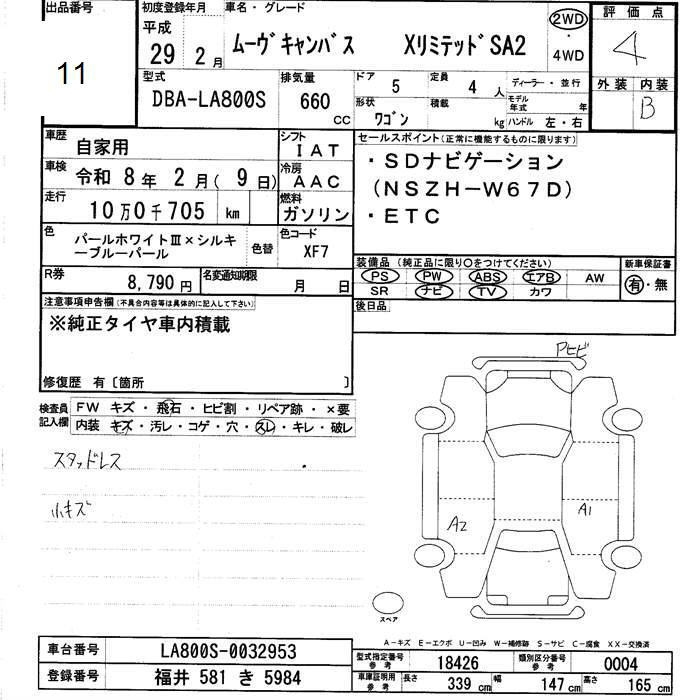 出品番号
11
初度登録年月
平成
29 2月
車名・グレード
ムーヴキャンバス XリミテッドSA2
2WD
・
4WD
評価点
4
外装 内装
B
型式
DBA-LA800S
排気量
660
CC
ドア 5
定員 4 人
ディーラー・並行
形状
ワゴン
積載
kg
モデル年式 年
ハンドル 左・右
車歴
自家用
シフト
IAT
車検
令和 8年 2月( 9日)
冷房
AAC
走行
10万0千705 km
燃料
ガソリン
色
パールホワイトⅢ×シルキ
ーブルーパール
色替
色コード
XF7
R券
8,790 円
名変通知期限
月 日
セールスポイント(正常に機能するものに限ります)
・SDナビゲーション
(NSZH-W67D)
・ETC
装備品(純正品に限り○をつけてください)
PS PW ABS エアB AW
SR ナビ TV カワ
新車保証書
有・無
後日品
注意事項申告欄(不具合内容等は具体的に記入して下さい)
※純正タイヤ車内積載
修復歴 有〔箇所 〕
検査員
記入欄
FW キズ・飛石・ヒビ割・リペア跡・×要
内装 キズ・汚レ・コゲ・穴・スレ・キレ・破レ
スタッドレス
小キズ
Pヒビ
A2
A1
スペア
A-キズ E-エクボ U-凹み W-補修跡 S-サビ C-腐食 XX-交換済
車台番号
LA800S-0032953
登録番号
福井 581 き 5984
型式指定番号
参考
18426
類別区分番号
参考
0004
車庫証明用
参考
長さ 339 cm
幅 147 cm
高さ 165 cm